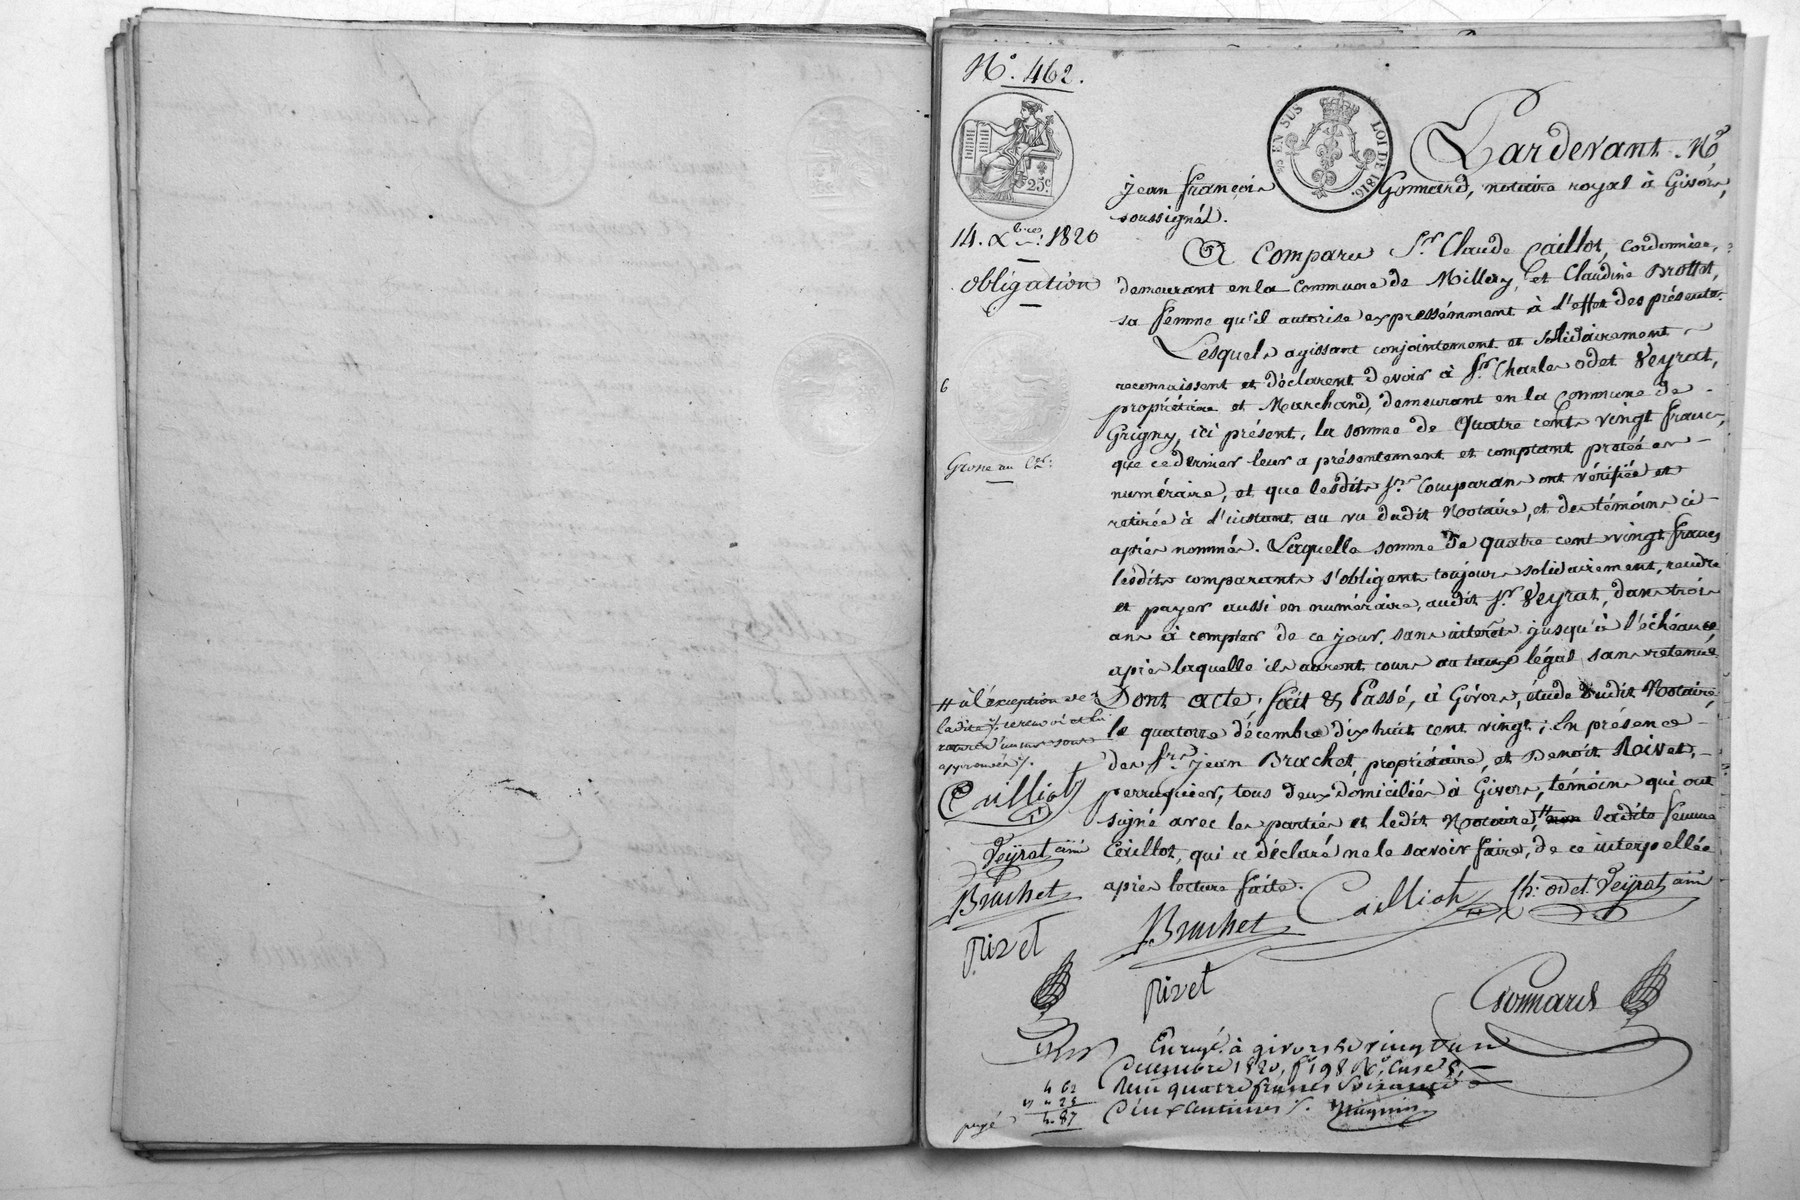 N.° 462.
25.c
EN SUS LOI DE 1816.
Pardevant M.e
jean françois Gonnard, notaire royal à Givors,
soussigné.
14. Xbre 1820
obligation
A Comparu Sr. Claude Cailliot, cordonnier,
demeurant en la Commune de Millery, et Claudine Brottet,
sa femme qu'il autorise expressémment à l'effet des présentes.
Lesquels agissant conjointement et solidairement
reconnaissent et déclarent devoir à Sr. Charles odet Veyrat,
6
propriétaire et Marchand, demeurant en la commune de
Grigny, ici présent, la somme de Quatre cents vingt francs,
Grosse au Cer.
que ce dernier leur a présentement et comptant pretée en
numéraire, et que lesdits Srs. Comparans ont vérifiée et
retirée à l'instant au vu dudit Notaire, et des témoins ci-
après nommés. Laquelle somme de quatre cent vingt francs
lesdits comparants s'obligent toujours solidairement, rendre
et payer aussi en numéraire, audit Sr. Veyrat, dans trois
ans à compter de ce jour, sans intérêts jusqu'à l'échéance,
après laquelle ils auront cours au taux légal sans retenue.
Dont acte, fait & Passé, à Givors, étude dudit Notaire,
le quatorze décembre dix huit cent vingt; En présence
des Srs. jean Brachet propriétaire, et Benoit Rivet,
perruquier, tous deux domiciliés à Givors, témoins qui ont
signé avec les parties et ledit Notaire, # non ladite femme
Cailliot, qui a déclaré ne le savoir faire, de ce interpellée
après lecture faite.
# à l'éxception de
ladite /. renvoi et la
rature d'un mot sous
approuvés /.
Cailliot
Veyrat ainé
Brachet
Rivet
Cailliot
Ch: odet Veyrat ainé
Brachet
Rivet
Gonnard
Enregé. à givors le vingt un
Decembre 1820, f° 198 Ro, Case 8,
Reçu quatre francs Soixante
Deux Centimes /.
4 62
" 25
payé 4. 87